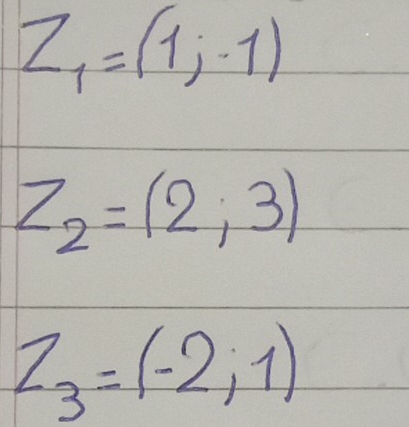 Z₁=(1;-1)
Z₂=(2;3)
Z₃=(-2;1)